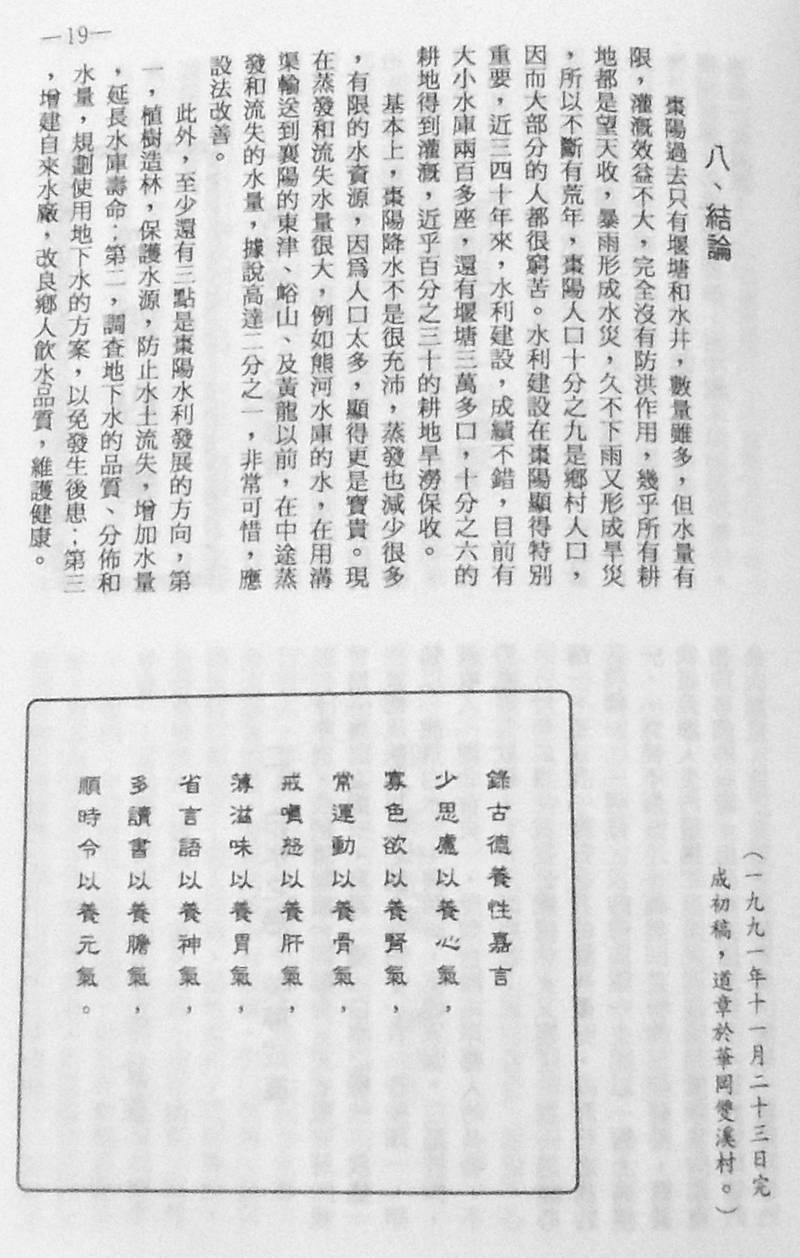 —19—
八、結論
棗陽過去只有堰塘和水井，數量雖多，但水量有
限，灌溉效益不大，完全沒有防洪作用，幾乎所有耕
地都是望天收，暴雨形成水災，久不下雨又形成旱災
，所以不斷有荒年，棗陽人口十分之九是鄉村人口，
因而大部分的人都很窮苦。水利建設在棗陽顯得特別
重要，近三四十年來，水利建設，成績不錯，目前有
大小水庫兩百多座，還有堰塘三萬多口，十分之六的
耕地得到灌溉，近乎百分之三十的耕地旱澇保收。
基本上，棗陽降水不是很充沛，蒸發也減少很多
，有限的水資源，因爲人口太多，顯得更是寶貴。現
在蒸發和流失水量很大，例如熊河水庫的水，在用溝
渠輸送到襄陽的東津、峪山、及黃龍以前，在中途蒸
發和流失的水量，據說高達二分之一，非常可惜，應
設法改善。
此外，至少還有三點是棗陽水利發展的方向，第
一，植樹造林，保護水源，防止水土流失，增加水量
，延長水庫壽命；第二，調查地下水的品質、分佈和
水量，規劃使用地下水的方案，以免發生後患；第三
，增建自來水廠，改良鄉人飲水品質，維護健康。
（一九九一年十一月二十三日完
成初稿，道章於華岡雙溪村。）
錄古德養性嘉言
少思慮以養心氣，
寡色欲以養腎氣，
常運動以養骨氣，
戒嗔怒以養肝氣，
薄滋味以養胃氣，
省言語以養神氣，
多讀書以養膽氣，
順時令以養元氣。